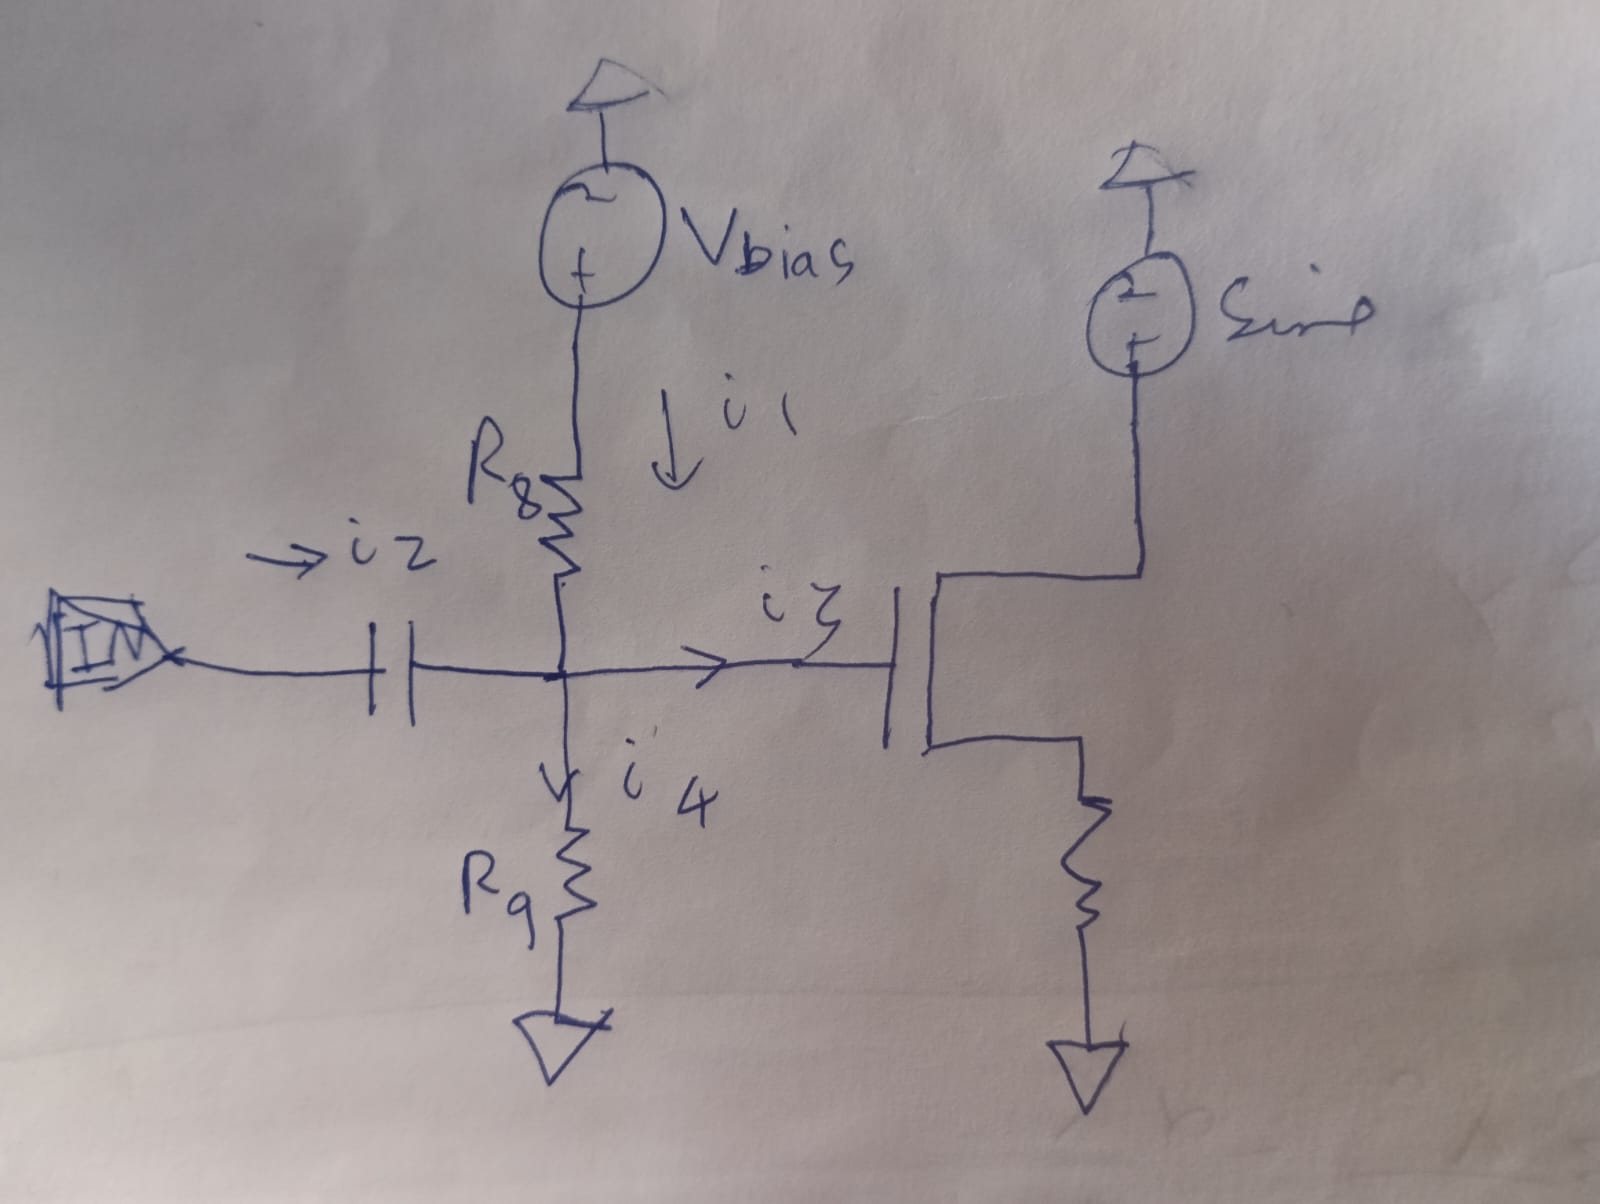 Vbias
Sine
i1
R8
i2
IN
i3
i4
R9